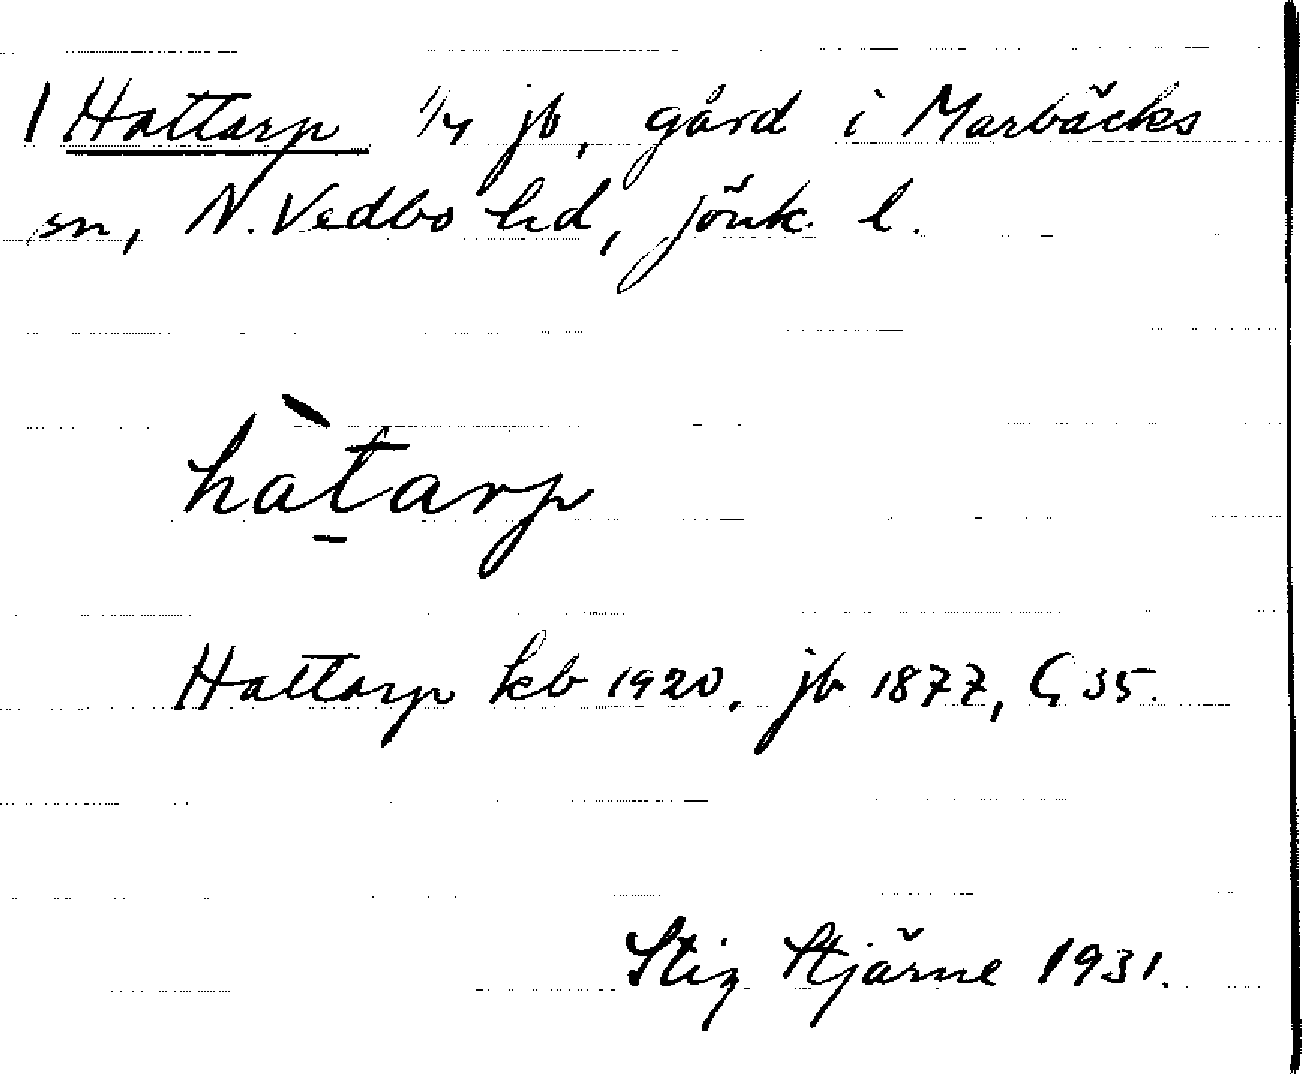 1 Hattarp 1/4 jb, gård i Marbäcks
sn, N. Vedbo hd, Jönk. l.
hàt̠arp
Hattarp kb 1920, jb 1877, G 35.
Stig Stjärne 1931.